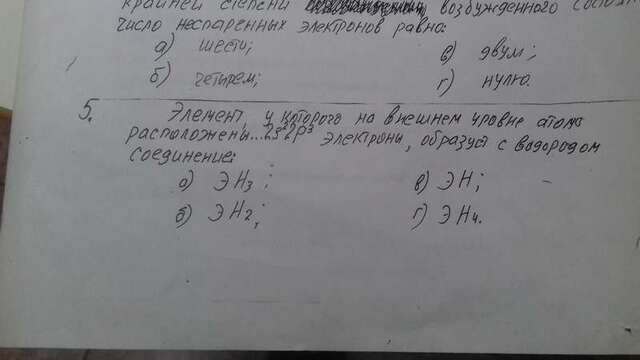 крайней степени возбужденного состоян
число неспаренных электронов равно:
а) шести; в) двум;
б) четырем; г) нулю.
5. Элемент, у которого на внешнем уровне атома
расположены ...2s²2p³ электроны, образует с водородом
соединение:
а) ЭН₃; в) ЭН;
б) ЭН₂; г) ЭН₄.